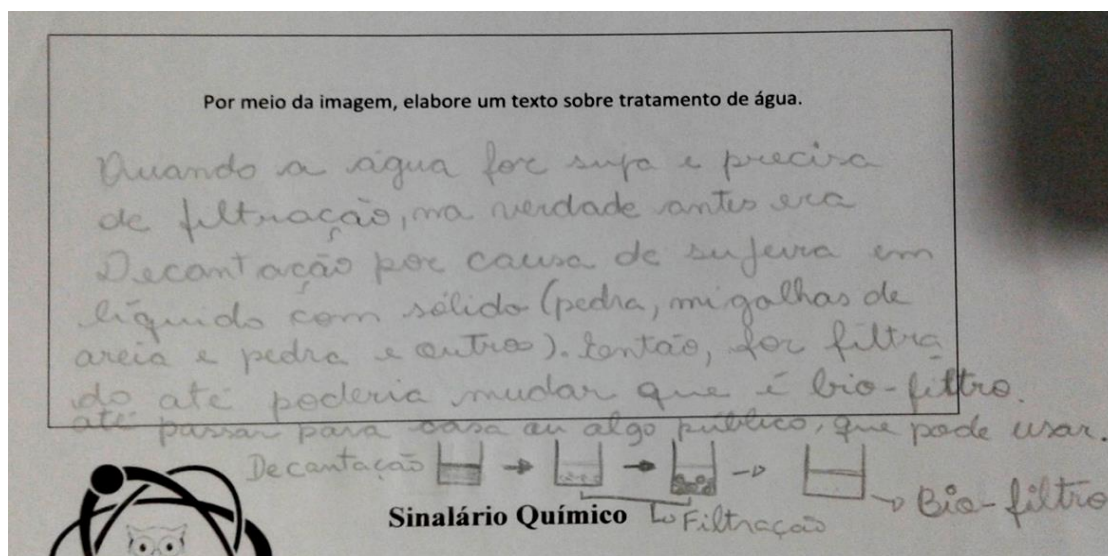 Por meio da imagem, elabore um texto sobre tratamento de água.
Quando a água for suja e precisa
de filtração, na verdade antes era
Decantação por causa de sujeira em
líquido com sólido (pedra, migalhas de
areia e pedra e outros). Então, for filtra
do até poderia mudar que é bio-filtro.
até passar para casa ou algo público, que pode usar.
Decantação
Bio-filtro
Sinalário Químico
Filtração